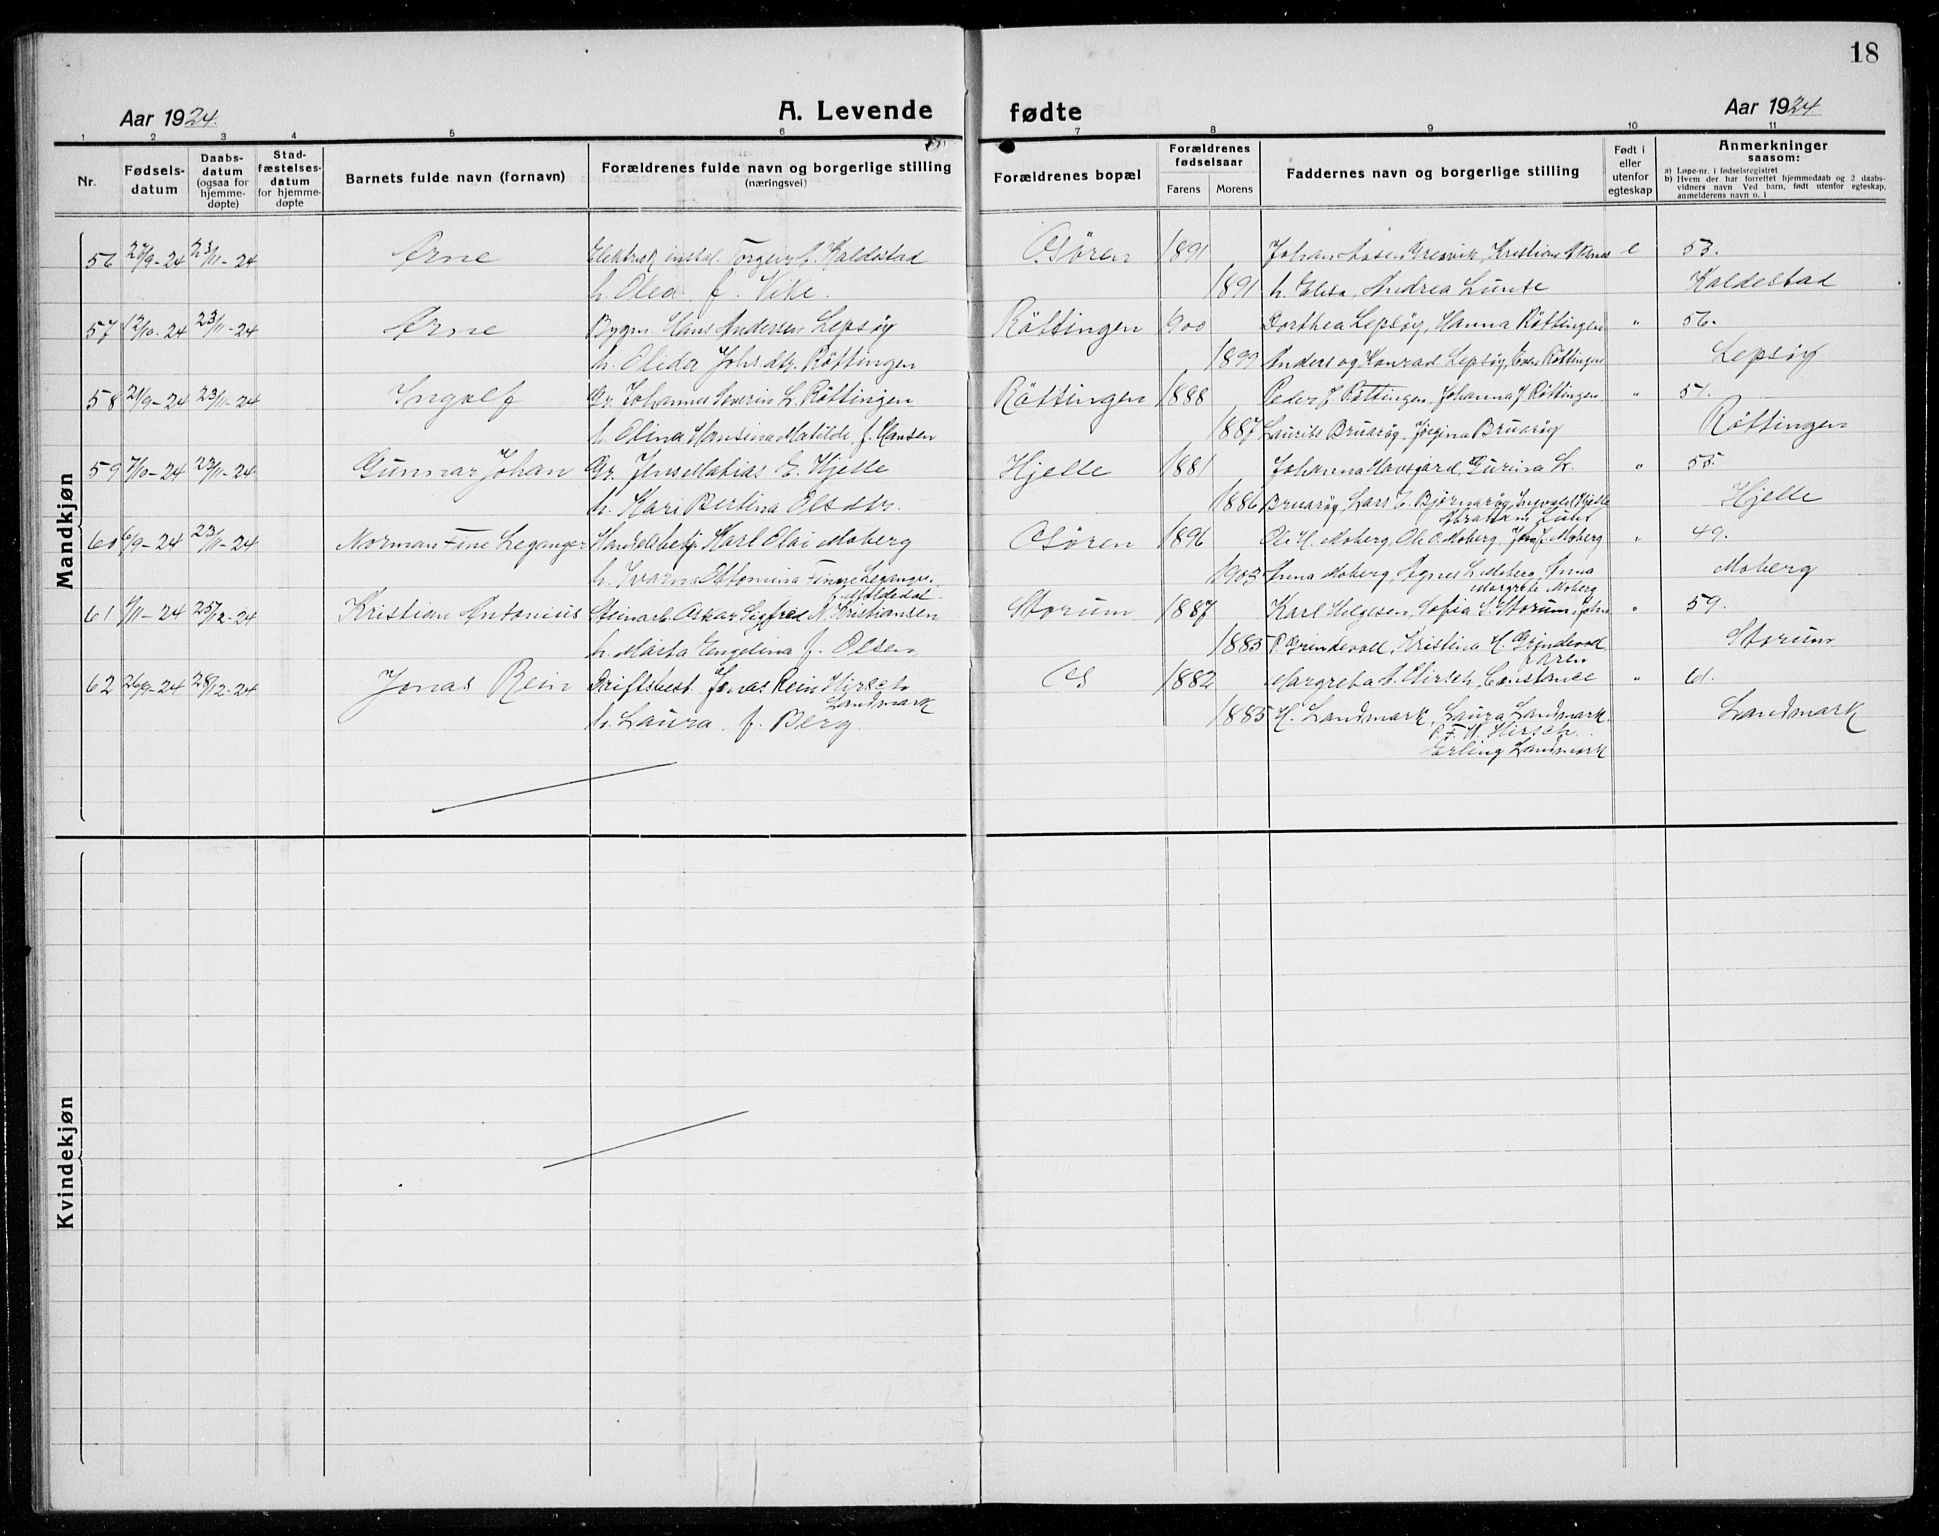 18
Aar 1924. A. Levende fødte Aar 1924.
1 2 3 4 5 6 7 8 9 10 11
Nr. Fødselsdatum Daabsdatum (ogsaa for hjemmedøpte) Stadfæstelsesdatum for hjemmedøpte Barnets fulde navn (fornavn) Forældrenes fulde navn og borgerlige stilling (næringsvei) Forældrenes bopæl Forældrenes fødselsaar Farens Morens Faddernes navn og borgerlige stilling Født i eller utenfor egteskap Anmerkninger saasom: a) Løpe-nr. i fødselsregistret b) Hvem der har forrettet hjemmedaab og 2 daabsvidners navn Ved barn, født utenfor egteskap, anmelderens navn o. l
Mandkjøn
56 27/9-24 23/11-24 Arne Elektrisk instal. Torgeir Kaldestad Osøren 1891 Johan Kristian e 53.
h. Olea f. Vike. 1891 h. Elisa, Andrea Lunde Kaldestad
57 12/10-24 23/11-24 Arne Bygm Hans Andersen Lepsøy Røttingen 900 Dorthea Lepsøy, Hanna Røttingen " 56.
h. Olida Johsdtr. Røttingen 1899 Anders og Konrad Lepsøy, Røttingen Lepsøy
58 21/9-24 23/11-24 Ingolf Gr. Johannes Severin L. Røttingen Røttingen 1888 Peder J Røttingen, Johanna J Røttingen " 51.
h. Olina Hansina Matilde, f. Hansen 1887 Laurits Bruarøy, Jørgina Bruarøy Røttingen
59 7/10-24 23/11-24 Gunnar Johan Gr. Jens Matias E. Hjelle Hjelle 1881 Johanna Gurina " 55.
h. Kari Bertina Olsdtr. 1886 Bruarøy, Lars E. Bjørnarøy, Ingvald Hjelle Hjelle
60 6/9-24 23/11-24 Norman Fine Leganger Handelsbetj. Karl Olai Moberg Osøren 1896 Ole H. Moberg, Ole O. Moberg, J. Moberg " 49.
h. Fine Leganger 1903 Anna Moberg, Agnes L. Moberg, Anna Moberg
f. Moldedal Margrete Moberg
61 1/11-24 25/12-24 Kristian Antonius Steinarb. Oskar Sigfred N. Kristiansen Storum 1887 Karl Helgesen, Sofia S. Storum, " 59.
h. Marta Engelina f. Olsen 1885 P. Grindevoll, Kristina H. Grindevoll Storum
62 26/9-24 28/12-24 Jonas Rein Driftsbest. Jonas Rein Hirsch Os 1882 Margreta Hirsch, Constance " 61.
Landmark
h. Laura f. Berg. 1885 H. Landmark, Laura Landmark. Landmark
P. F. W. Hirsch.
Erling Landmark
Kvindekjøn